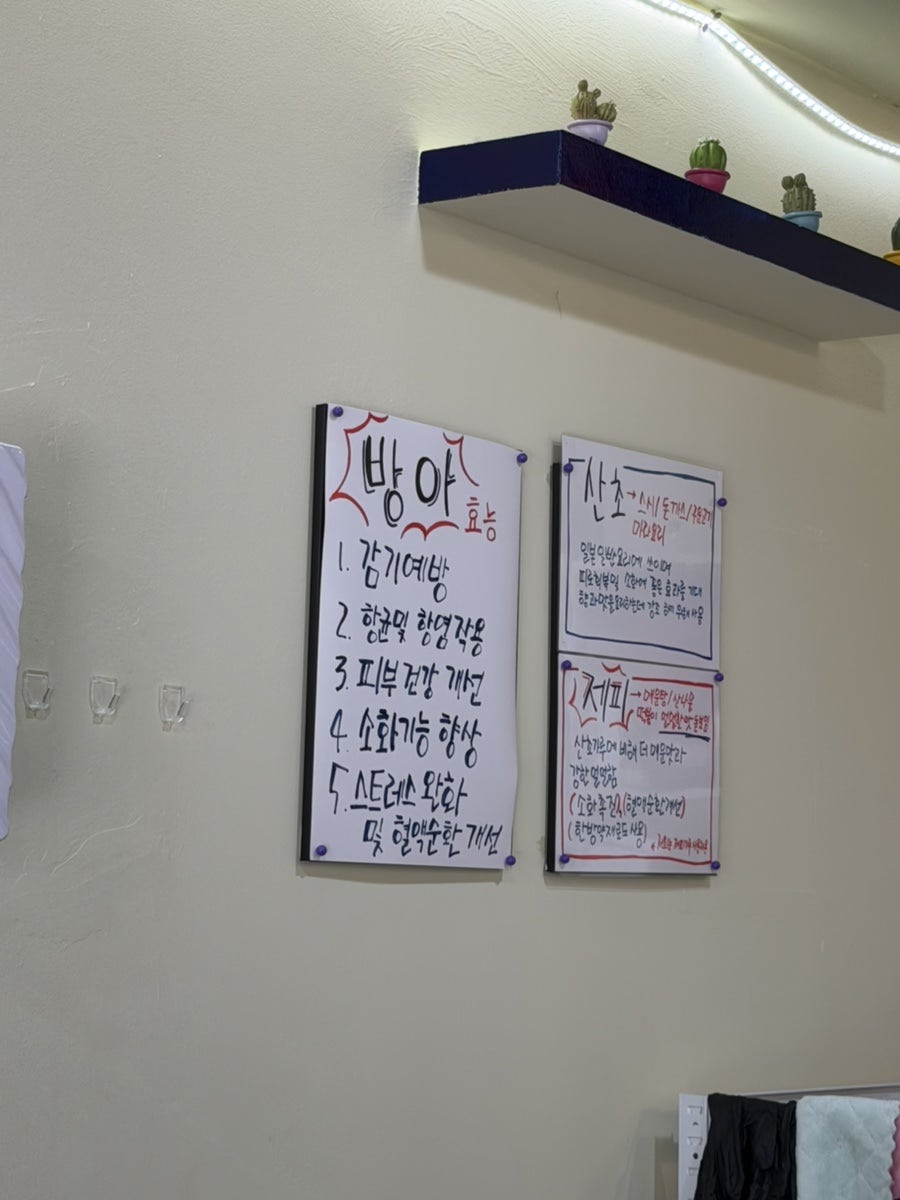 방아
효능
1. 감기예방
2. 항균및 항염작용
3. 피부건강 개선
4. 소화기능 향상
5. 스트레스 완화
및 혈액순환 개선
산초 → 스시/돈까스/
마라요리
일본일반요리에 쓰이며
피로회복및 소화에 좋은 효과를 기대
사용
제피 → 매운탕/산나물
떡볶이
산초가루에 비해 더 매운맛과
강한 얼얼함
(소화촉진)(혈액순환개선)
(한방약재로도 사용)